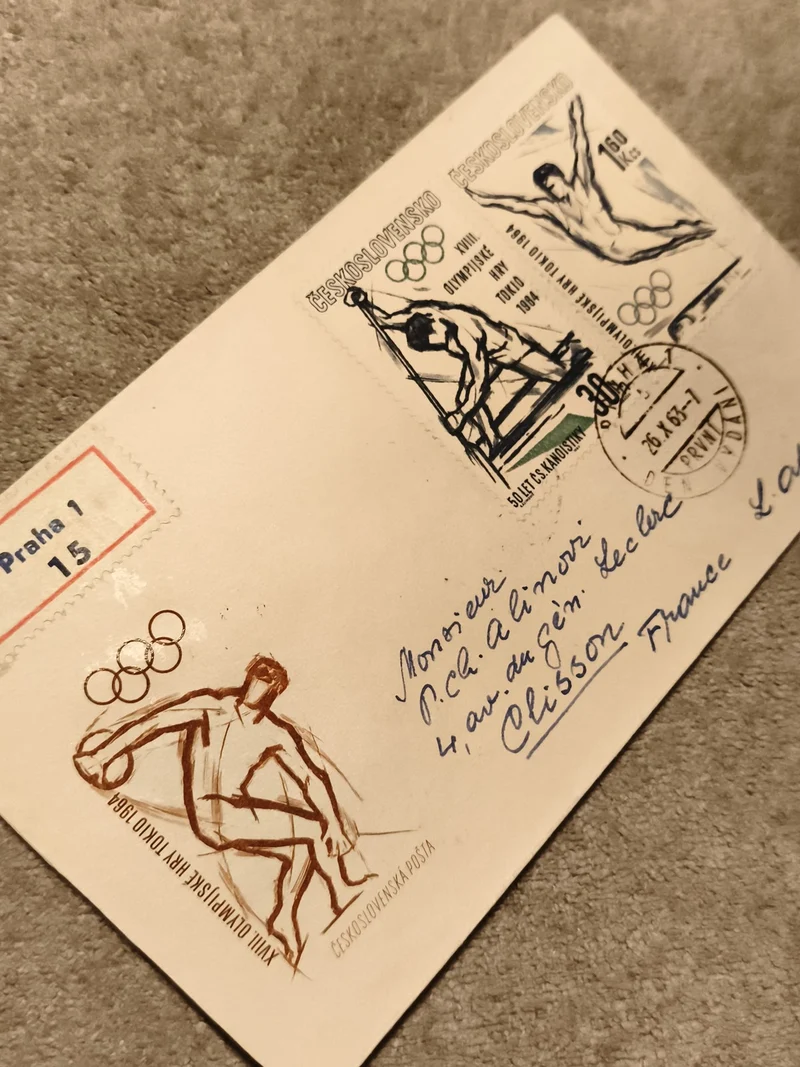 ČESKOSLOVENSKO
XVIII.
OLYMPIJSKÉ
HRY
TOKIO
1964
30h
50 LET ČS. KANOISTIKY
ČESKOSLOVENSKO
1,60
Kčs
OLYMPIJSKÉ HRY TOKIO 1964
26.X.63-7
PRVNÍ
DEN VYDÁNÍ
Praha 1
15
Monsieur
P. Ch. Alinovi
4, av. du Gén. Leclerc
Clisson
France
XVIII. OLYMPIJSKÉ HRY TOKIO 1964
ČESKOSLOVENSKÁ POŠTA